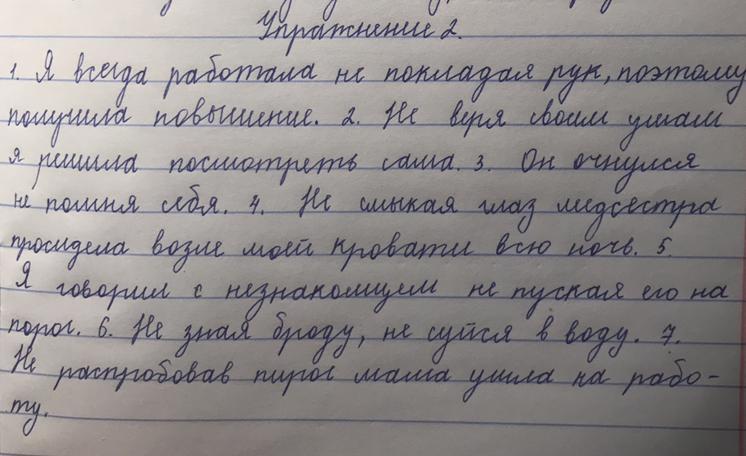 Упражнение 2.
1. Я всегда работала не покладая рук, поэтому
получила повышение. 2. Не веря своим ушам
я решила посмотреть сама. 3. Он очнулся
не помня себя. 4. Не смыкая глаз медсестра
просидела возле моей кровати всю ночь. 5.
Я говорил с незнакомцем не пуская его на
порог. 6. Не зная броду, не суйся в воду. 7.
Не распробовав пирог мама ушла на рабо-
ту.